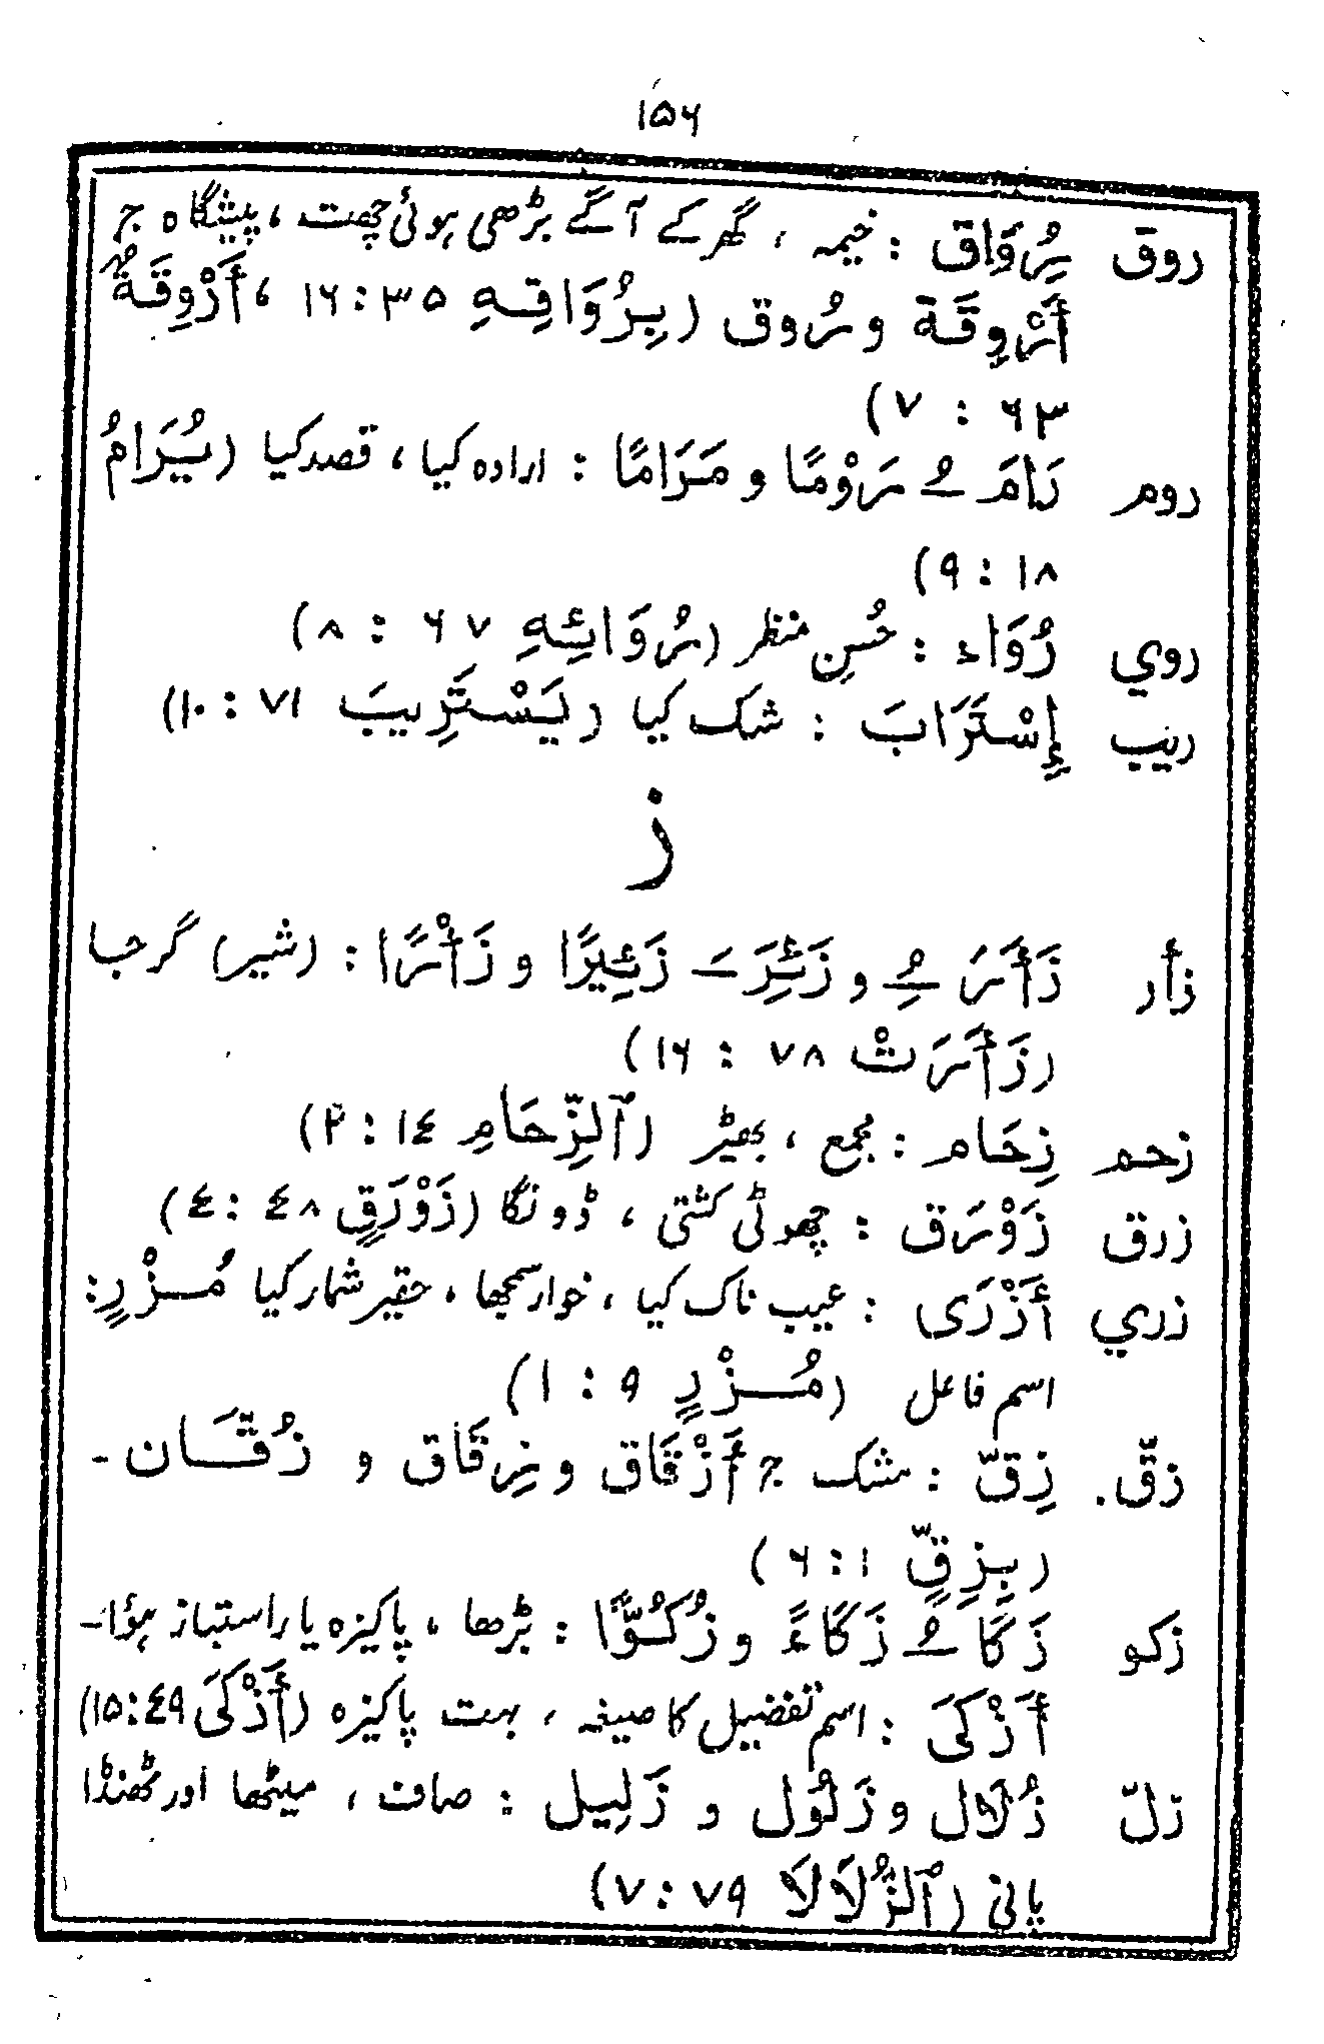 ۱۵۶
روق رُوَاق : خیمہ ، گھر کے آگے بڑھی ہوئی چھت ، پیشگاہ ج
أَرْوِقَة و رُوق (بِرُوَاقِہِ ۳۵ : ۱۶ ، أَرْوِقَةٌ
۶۳ : ۷)
روم رَامَ ــُـ رَوْمًا و مَرَامًا : ارادہ کیا ، قصد کیا (یُرَامُ
۱۸ : ۹)
روي رُوَاء : حُسنِ منظر (رُوَائِہِ ۶۷ : ۸)
ریب إِسْتَرَابَ : شک کیا (یَسْتَرِیبَ ۷۱ : ۱۰)
ز
زأر زَأَرَ ــِـُـ و زَئِرَ ــَـ زَئِیرًا و زَأْرًا : (شیر) گرجا
(زَأَرَتْ ۷۸ : ۱۶)
زحم زِحَام : مجمع ، بھیڑ (ٱلزِّحَامِ ١٤ : ۲)
زرق زَوْرَق : چھوٹی کشتی ، ڈونگا (زَوْرَقٍ ٤٨ : ٤)
زري أَزْرَی : عیب ناک کیا ، خوار سمجھا ، حقیر شمار کیا مُزْرِ:
اسم فاعل (مُزْرٍ ۹ : ۱)
زقّ. زِقّ : مشک ج أَزْقَاق و زِقَاق و زُقَّان ۔
(بِزِقٍّ ۱ : ۶)
زکو زَکَا ــُـ زَکَاءً و زُکُوًّا : بڑھا ، پاکیزہ یا راستباز ہؤا۔
أَزْکَیَ : اسم تفضیل کا صیغہ ، بہت پاکیزہ (أَزْکَی ٤٩ : ۱۵)
زلّ زُلَال و زَلُول و زَلِیل : صاف ، میٹھا اور ٹھنڈا
پانی (ٱلزُّلَالَا ۷۹ : ۷)